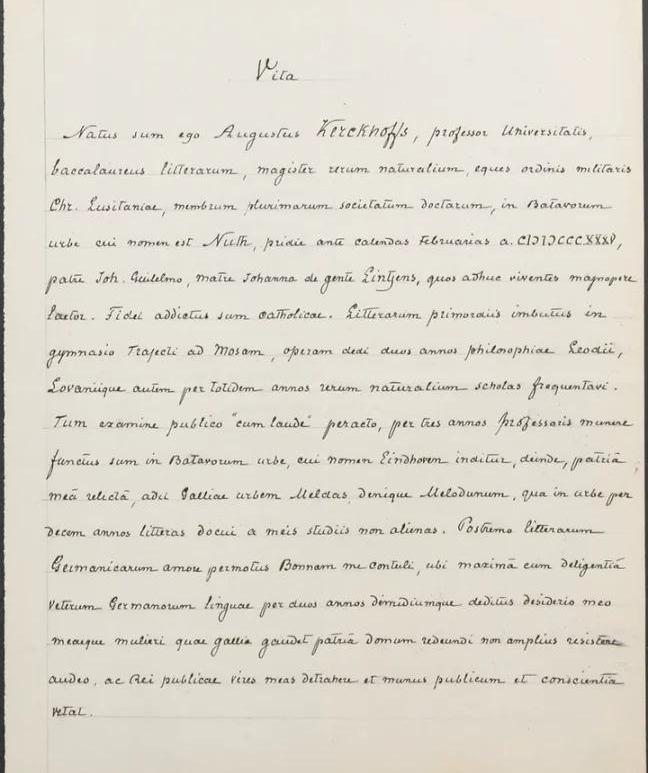 Vita
Natus sum ego Augustus Kerckhoffs, professor Universitatis,
baccalaureus litterarum, magister rerum naturalium, eques ordinis militaris
Chr. Lusitaniae, membrum plurimarum societatum doctarum, in Batavorum
urbe cui nomen est Nuth, pridie ante calendas Februarias a. CIƆIƆCCCXXXV,
patre Joh. Guilelmo, matre Johanna de gente Lintjens, quos adhuc viventes magnopere
laetor. Fidei addictus sum catholicae. Litterarum primordiis imbutus in
gymnasio Trajecti ad Mosam, operam dedi duos annos philosophiae Leodii,
Lovaniique autem per totidem annos rerum naturalium scholas frequentavi.
Tum examine publico "cum laude" peracto, per tres annos professoris munere
functus sum in Batavorum urbe, cui nomen Eindhoven inditur, deinde, patriâ
meâ relictâ, adii Galliae urbem Meldas, denique Melodunum, qua in urbe per
decem annos litteras docui a meis studiis non alienas. Postremo litterarum
Germanicarum amore permotus Bonnam me contuli, ubi maximâ cum deligentiâ
veterum Germanorum linguae per duos annos dimidiumque deditus desiderio meo
meaeque mulieri quae gallia gaudet patriâ domum redeundi non amplius resistere
audeo, ac Rei publicae vires meas detrahere et munus publicum et conscientia
vetat.